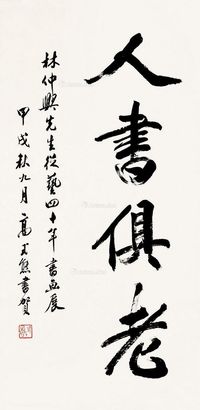 人書俱老
林仲興先生從藝四十年書画展
甲戌秋九月高式熊書賀